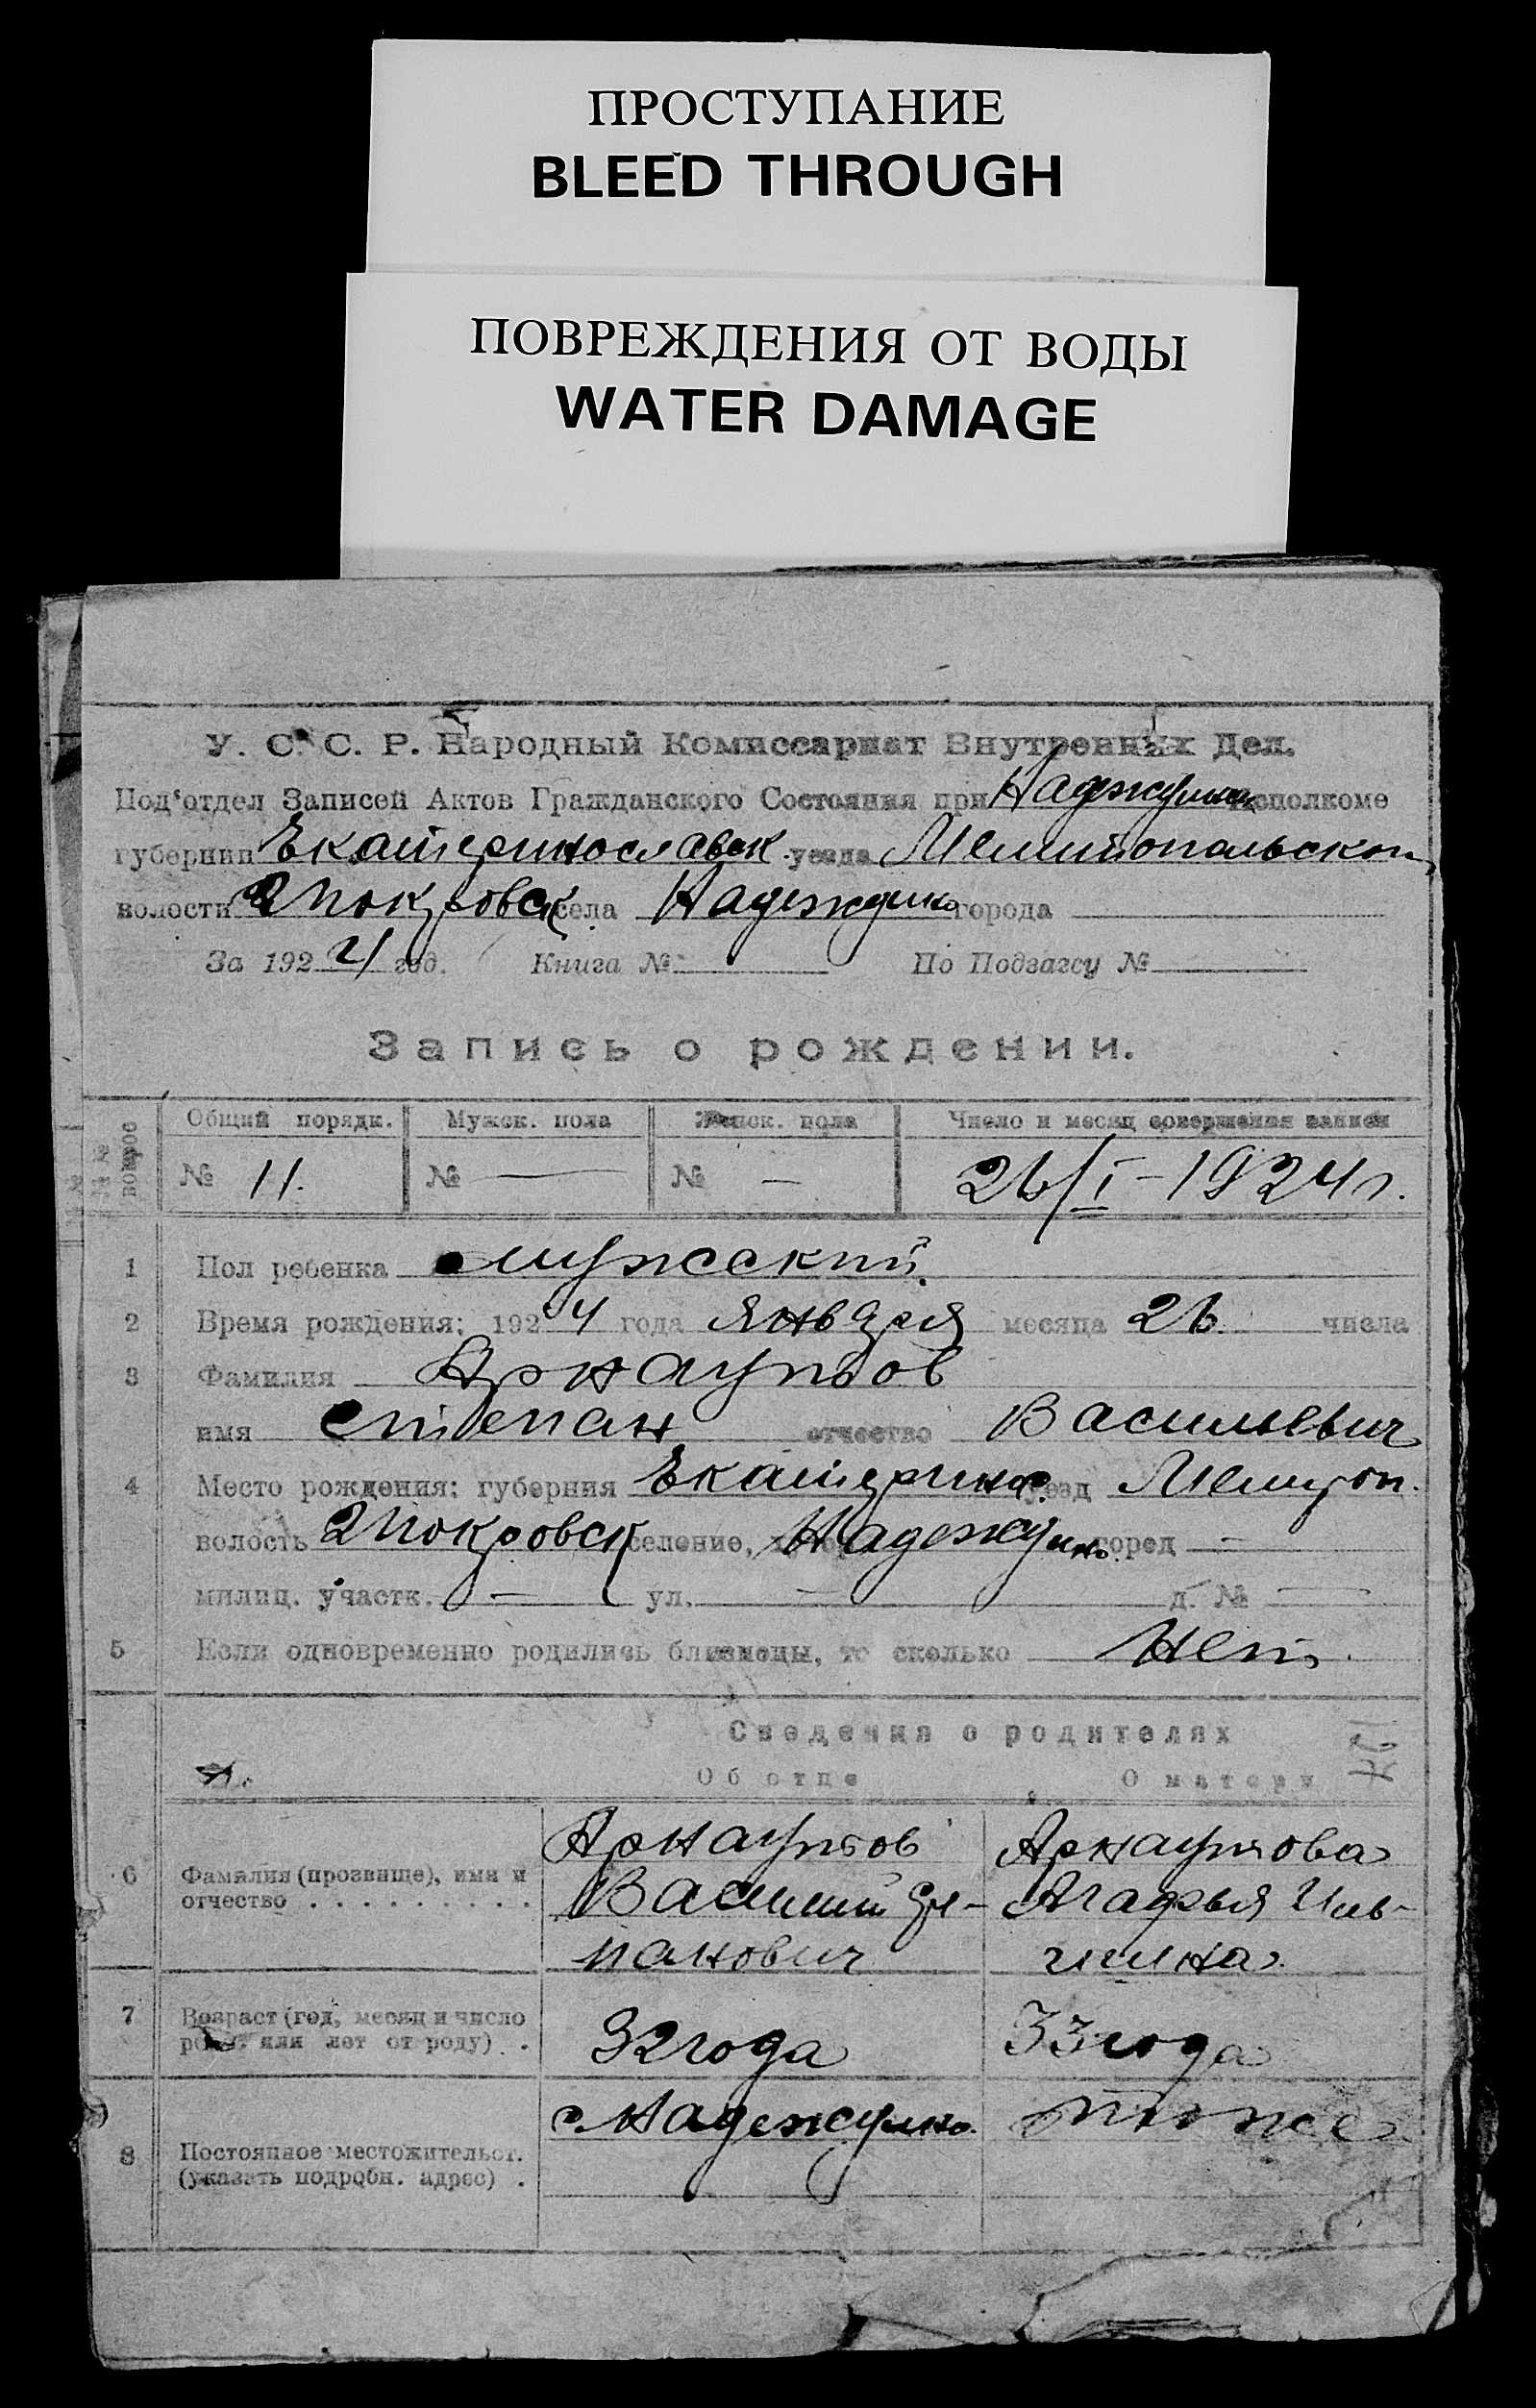 ПРОСТУПАНИЕ
BLEED THROUGH
ПОВРЕЖДЕНИЯ ОТ ВОДЫ
WATER DAMAGE
У. С. С. Р. Народный Комиссариат Внутренних Дел.
Под'отдел Записей Актов Гражданского Состояния при исполкоме
губернии Екатеринославск. уезда Мелитопольского
волости 2 Покровск села Надеждино города
За 1924 год. Книга № По Подзагсу №
Запись о рождении.
№№ вопрос
Общий порядк. Мужск. пола Женск. пола Число и месяц совершения записи
№ 11. № — № — 26/I-1924 г.
1 Пол ребенка мужеский
2 Время рождения: 1924 года января месяца 26 числа
3 Фамилия Арнаутов
имя Степан отчество Васильевич
4 Место рождения: губерния Екатерин. уезд Мелитоп.
волость 2 Покровск селение, Надеждино город —
милиц. участк. — ул. — д. № —
5 Если одновременно родились близнецы, то сколько Нет.
Сведения о родителях
Об отце О матери
6 Фамилия (прозвище), имя и отчество . . . . . . . . .
Арнаутов
Василий
панович
Арнаутова
Агафья
7 Возраст (год, месяц и число рожд. или лет от роду) .
32 года 33 года
8 Постоянное местожительст. (указать подробн. адрес) .
с Надеждино. тоже